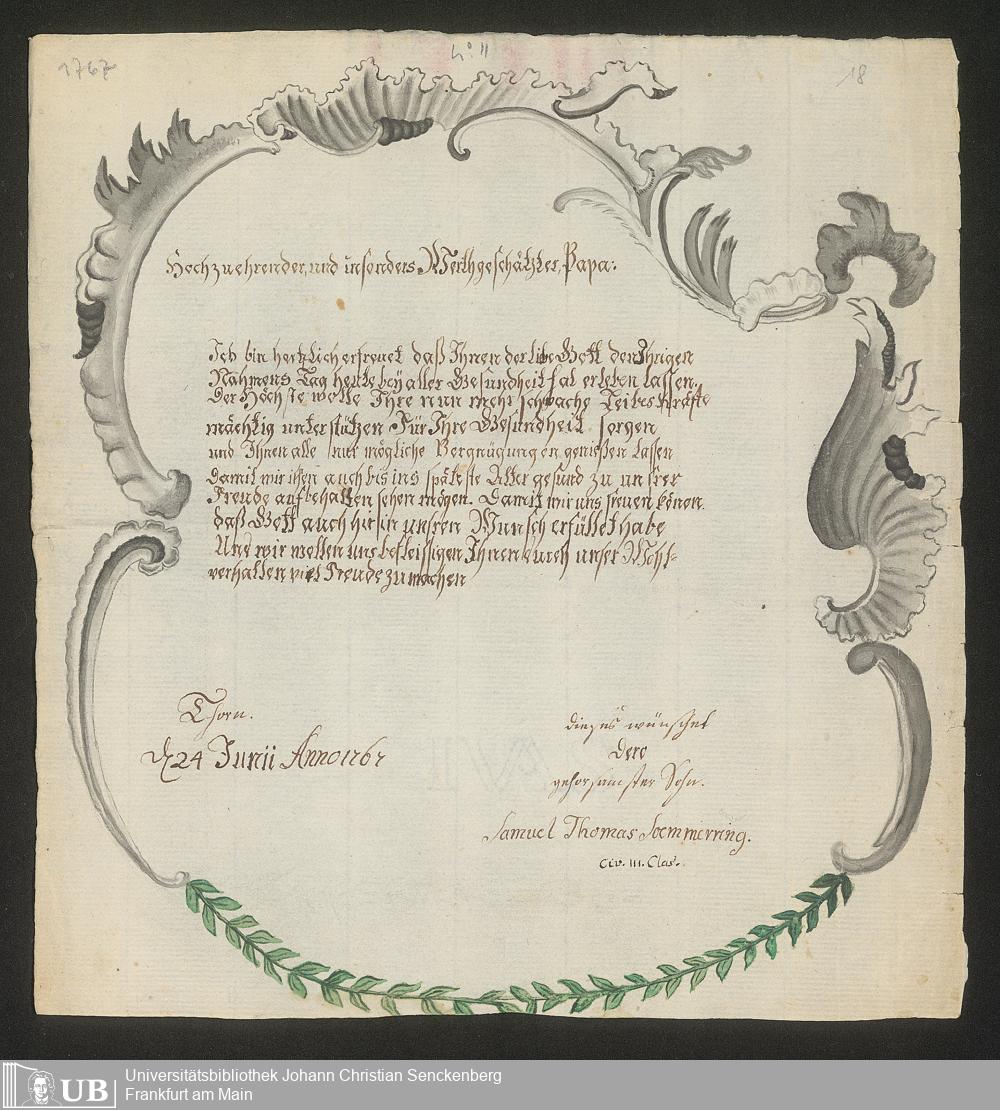 1767
No: 11
18
Hochzuehrender, und insonders Werthgeschätzter, Papa:
Ich bin hertzlich erfreuet daß Ihnen der libe Gott den Ihrigen
Nahmens Tag heute bey aller Gesundheit hat erleben lassen.
Der Höchste wolle Ihre nun mehr schwache Leibes Kräfte
mächtig unterstützen Für Ihre Gesundheit sorgen
und Ihnen alle nur mögliche Vergnügungen genießen lassen
Damit wir ihn auch bis ins späteste Alter gesund zu unsrer
Freude aufbehalten sehen mögen. Damit wir uns freuen könen
daß Gott auch hirin unsren Wunsch erfüllet habe
Und wir wollen uns befleissigen Ihnen durch unser Wohl-
verhalten viel Freude zu machen
Thorn.
d. 24 Junii Anno 1767
dieses wünschet
Dero
gehorsamster Sohn.
Samuel Thomas Soemmerring.
Civ. III. Clas.
UB
Universitätsbibliothek Johann Christian Senckenberg
Frankfurt am Main